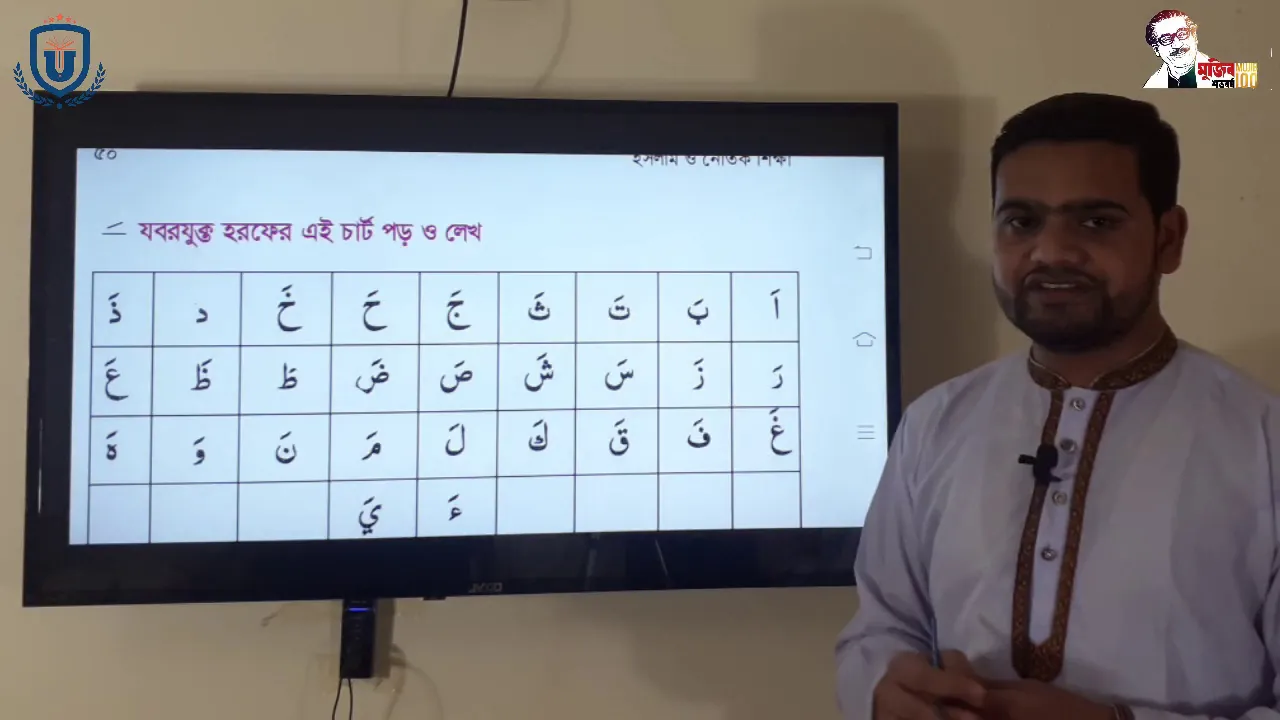 ৫০ ইসলাম ও নৈতিক শিক্ষা
যবরযুক্ত হরফের এই চার্ট পড় ও লেখ
اَ بَ تَ ثَ جَ حَ خَ د ذَ
رَ زَ سَ شَ صَ ضَ طَ ظَ عَ
غَ فَ قَ كَ لَ مَ نَ وَ ةَ
ءَ يَ
U
মুজিব
100